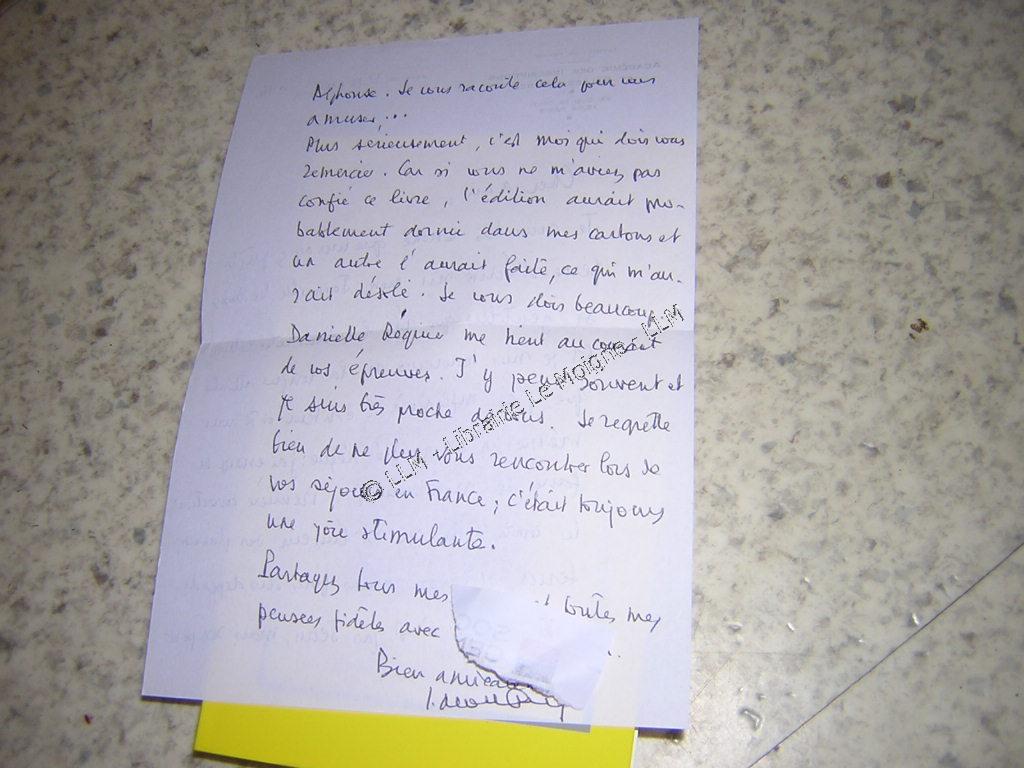 Alphonse. Je vous raconte cela pour vous
amuser...
Plus sérieusement, c'est moi qui dois vous
remercier. Car si vous ne m'aviez pas
confié ce livre, l'édition aurait pro-
bablement dormi dans mes cartons et
un autre l'aurait faite, ce qui m'au-
rait désolé. Je vous dois beaucoup.
Danielle Régnier me tient au courant
de vos épreuves. J'y pense souvent et
je suis très proche de vous. Je regrette
bien de ne plus vous rencontrer lors de
vos séjours en France ; c'était toujours
une joie stimulante.
Partagez tous mes toutes mes
pensées fidèles avec
Bien amicalement
© LLM - Librairie Le Moigne - LLM